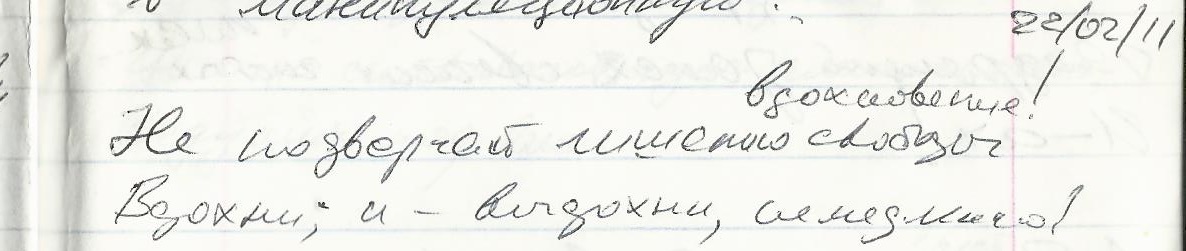 в манипуляционную.
22/02/11
вдохновение!
Не подвергай лишению свободы
Вдохни; и – выдохни, немедленно!